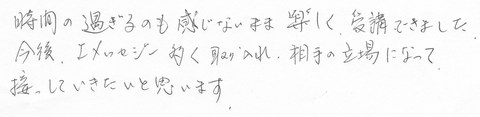 時間の過ぎるのも感じないまま楽しく、受講できました。
今後、Iメッセージ、約く取り入れ、相手の立場になって
接していきたいと思います。